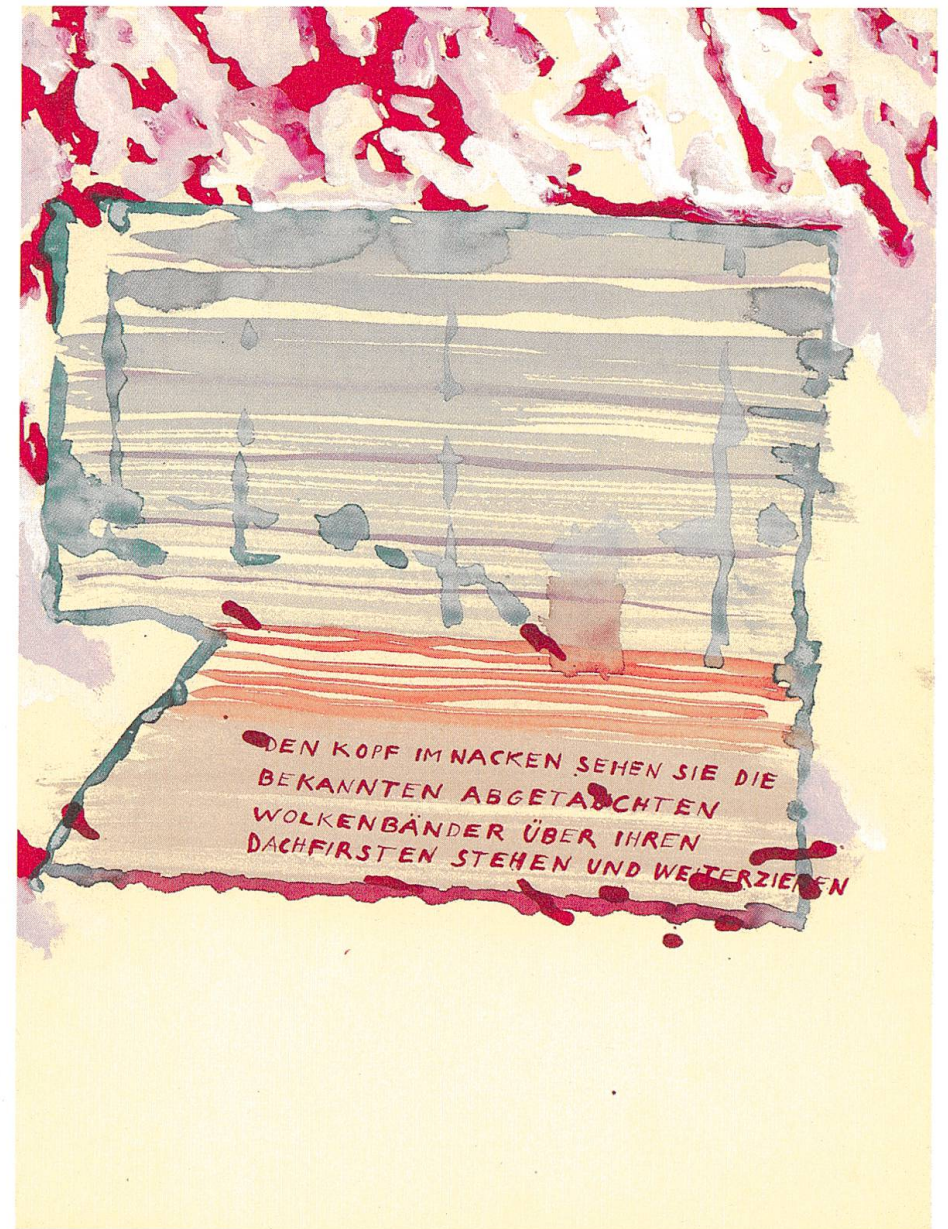 DEN KOPF IM NACKEN SEHEN SIE DIE
BEKANNTEN ABGETAUCHTEN
WOLKENBÄNDER ÜBER IHREN
DACHFIRSTEN STEHEN UND WEITERZIEHEN